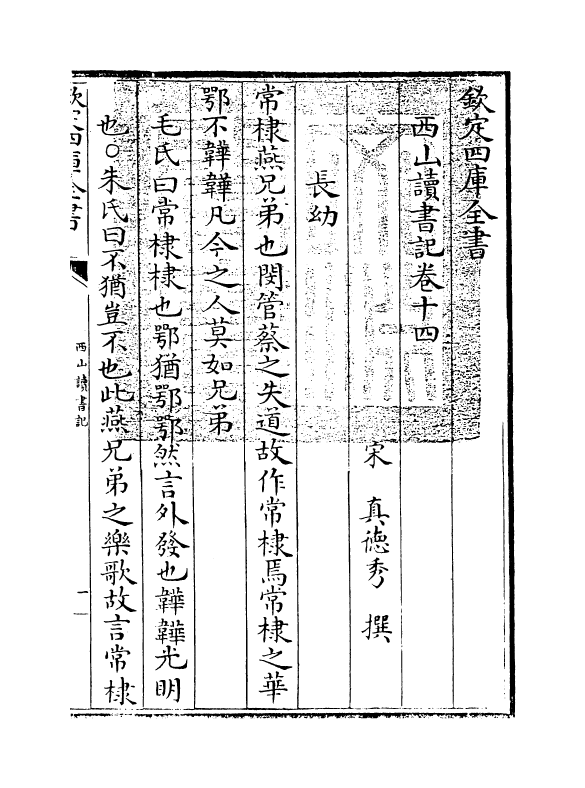 欽定四庫全書
西山讀書記卷十四
宋 真徳秀 撰
長幼
常棣燕兄弟也閔管蔡之失道故作常棣焉常棣之華
鄂不韡韡凡今之人莫如兄弟
毛氏曰常棣棣也鄂猶鄂鄂然言外發也韡韡光明
也○朱氏曰不猶豈不也此燕兄弟之樂歌故言常棣
欽定四庫全書
西山讀書記
一